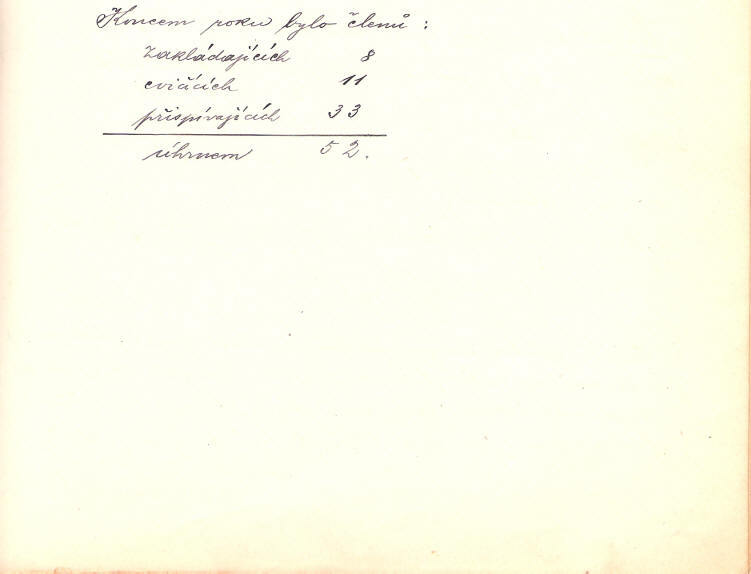 Koncem roku bylo členů :
zakládajících 8
cvičících 11
přispívajících 33
úhrnem 52.